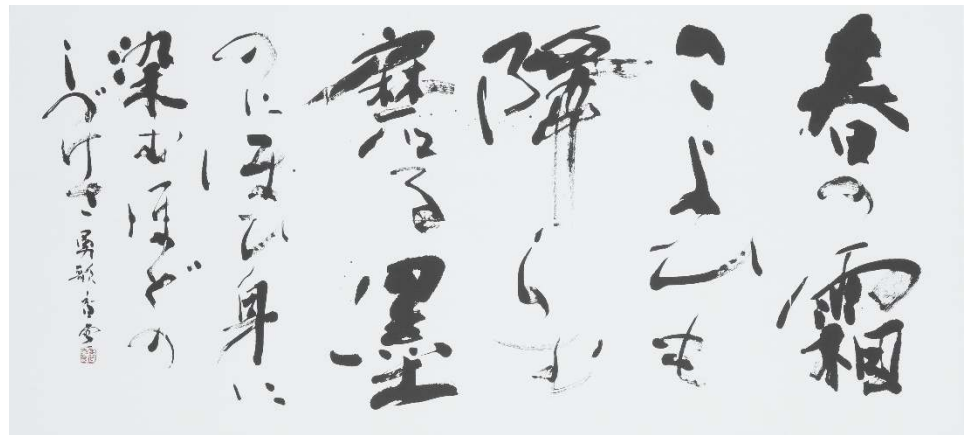 春の霜
こよひも
降らむ
磨る墨
のにほひ身に
染むほどの
しづけさ 勇歌 香雪